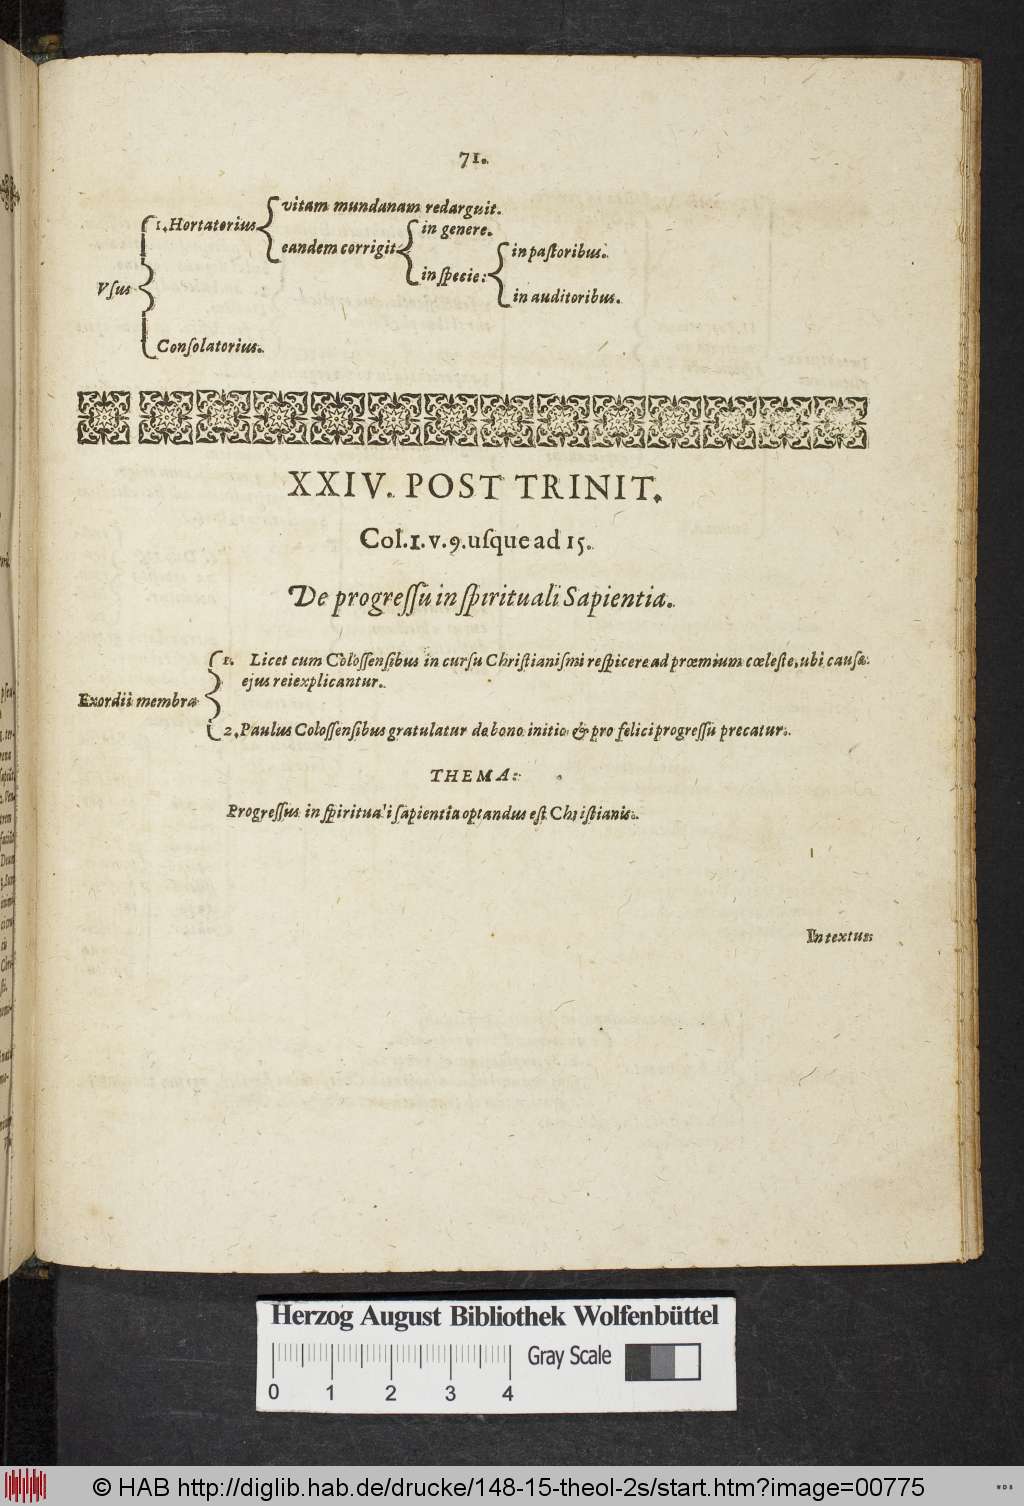 71.
vitam mundanam redarguit.
1. Hortatorius
in genere.
eandem corrigit
in pastoribus.
in specie:
Vsus
in auditoribus.
Consolatorius.
XXIV. POST TRINIT.
Col. 1. v. 9. usque ad 15.
De progressu in spirituali Sapientia.
1. Licet cum Colossensibus in cursu Christianismi respicere ad præmium cœleste, ubi causæ
ejus rei explicantur.
Exordii membra
2. Paulus Colossensibus gratulatur de bono initio & pro felici progressu precatur.
THEMA:
Progressus in spirituali sapientia optandus est Christianis.
In textu:
Herzog August Bibliothek Wolfenbüttel
Gray Scale
0 1 2 3 4
© HAB http://diglib.hab.de/drucke/148-15-theol-2s/start.htm?image=00775